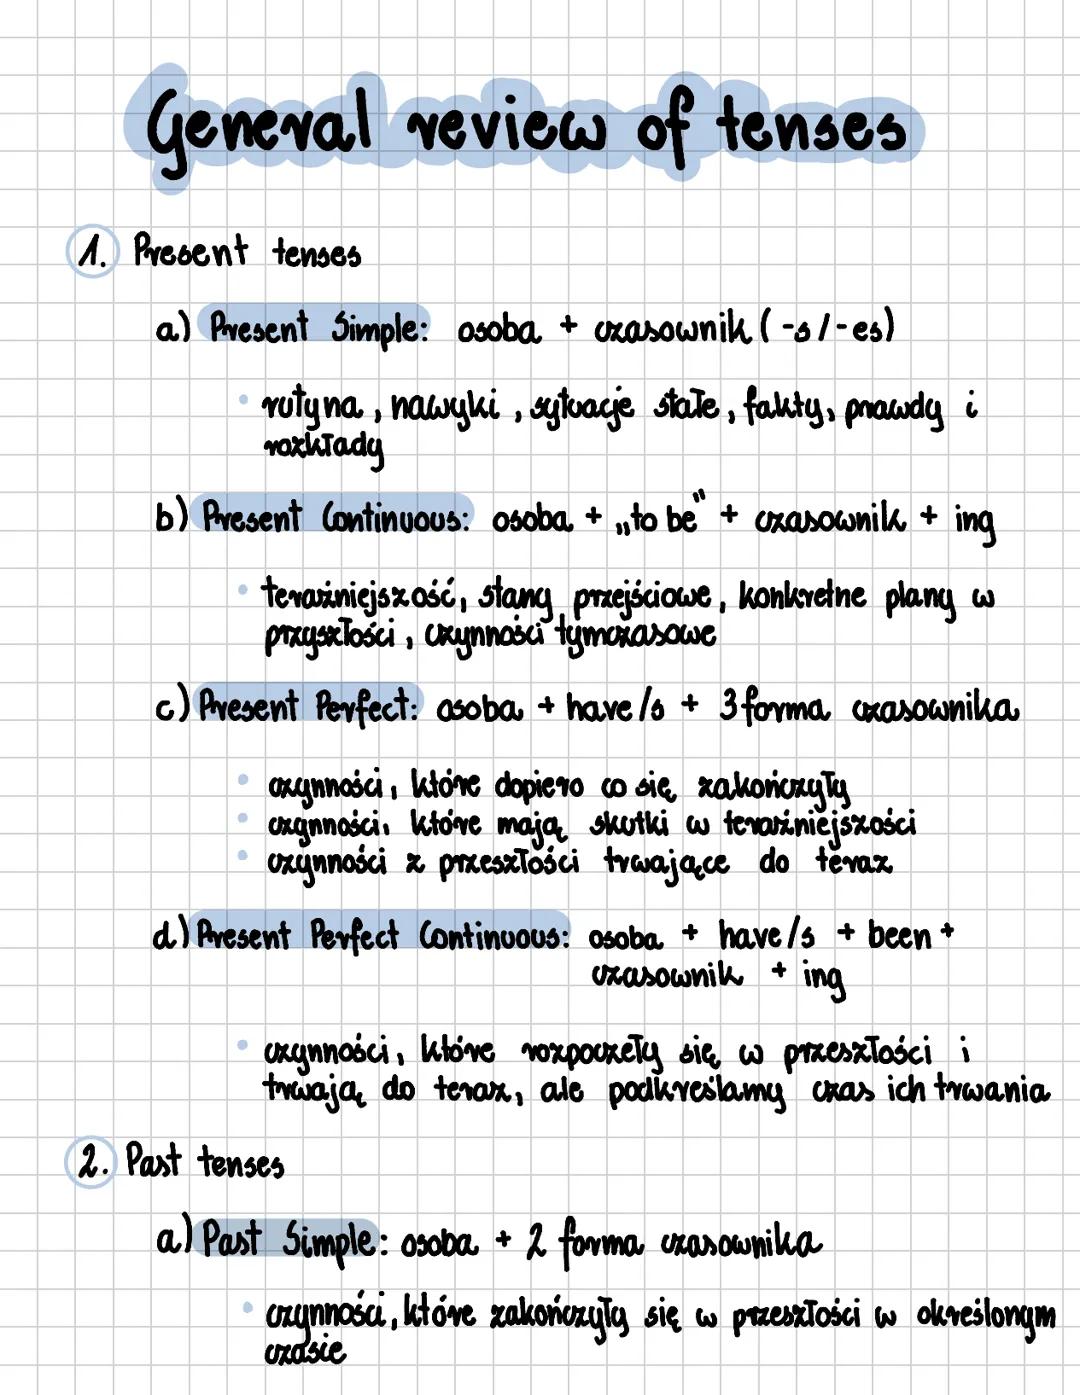 General review of tenses
1. Present tenses
a) Present Simple: osoba + czasownik (-s/-es)
• rutyna, nawyki, sytuacje stałe, fakty, prawdy i
rozkłady
b) Present Continuous: osoba + „to be" + czasownik + ing
• teraźniejszość, stany przejściowe, konkretne plany w
przyszłości, czynności tymczasowe
c) Present Perfect: osoba + have/s + 3 forma czasownika
• czynności, które dopiero co się zakończyły
• czynności, które mają skutki w teraźniejszości
• czynności z przeszłości trwające do teraz
d) Present Perfect Continuous: osoba + have/s + been +
czasownik + ing
• czynności, które rozpoczęły się w przeszłości i
trwają do teraz, ale podkreślamy czas ich trwania
2. Past tenses
a) Past Simple: osoba + 2 forma czasownika
• czynności, które zakończyły się w przeszłości w określonym
czasie